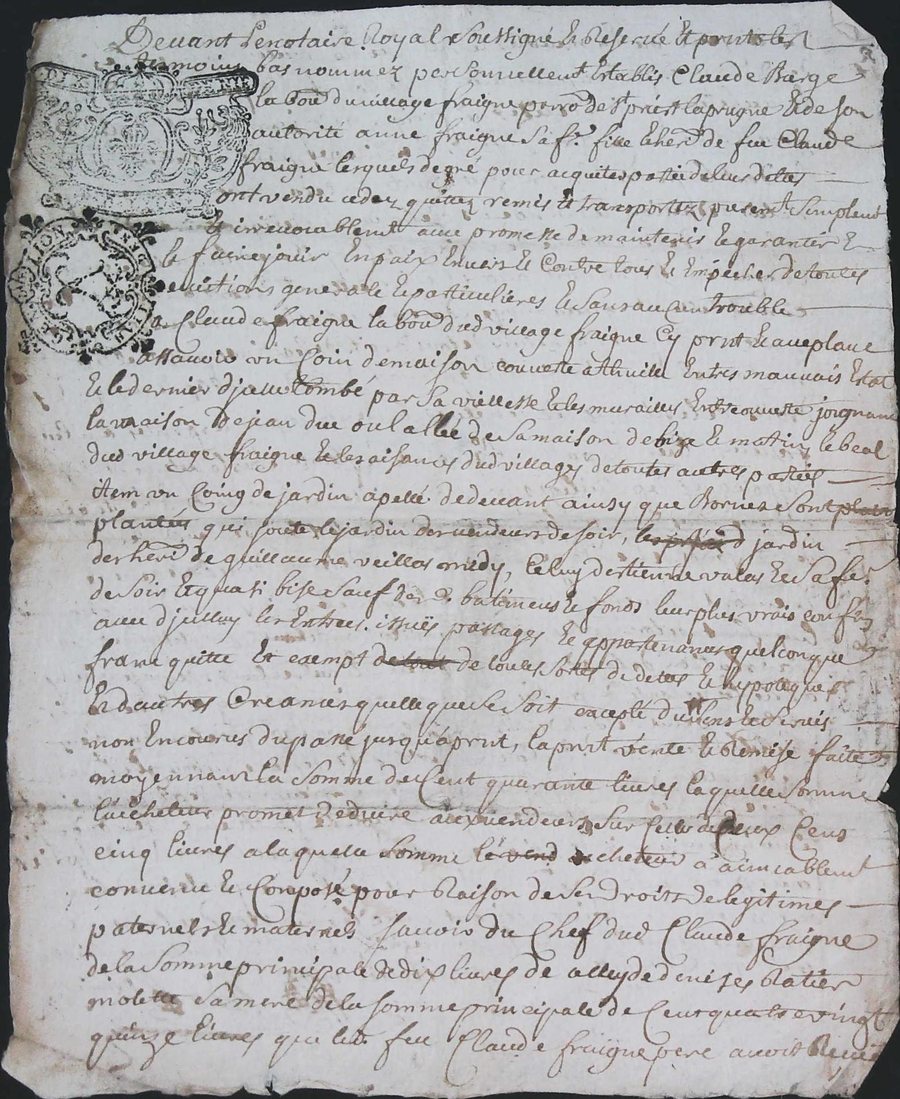 Devant le notaire Royal soussigné et réservé et présents les
témoins bas nommez personnellemt Establis Claude Barge
labour du village fraigne parr de St priest laprugne et de son
autorité anne fraigne sa fe fille et her de feu Claude
fraigne lesquels de gré pour acquiter partie de leurs dettes
ont vendu cedez quittez remis et transportez présent simplemt
et irrevocablemt avec promesse de maintenir et garantir et
le faire jouir En paix Envers et Contre tous et Empecher de toutes
evictions generale et particulieres et sans aucun trouble
a Claude fraigne labour dud village fraigne Cy prnt et acceptant
assavoir un Coin de maison couverte a thuille En tres mauvais Estat
et le dernier d'jcelle tombé par sa viellesse et les murailles joignant
la maison de jean duc ou l'allée de sa maison de bize et matin, le beal
dud village fraigne et les aisances dud village de toutes autres parties
item un Coing de jardin apellé de devant ainsy que Bornes sont
plantées qui joute le jardin des vendeurs de soir, jardin
des heri de guillaume veillas midy, Celuy destienne valas et sa fe
de soir et quasi bise sauf batimens et fonds leurs plus vrais confins
avec d'jceluy les Entrées issües passages et appartenances quelconque
franc quitte et exempt de toutes sortes de dettes et hypoteques
et d'autres Creances quelle que se soit excepté du Cens et servis
non Encourus du passé jusqu'a prnt, la prnt vente et Remise faite
moyennant la somme de Cent quarante livres laquelle somme
l'acheteur promet deduire aux vendeurs sur Celle de deux Cens
cinq livres a laquelle somme acheteur a aimiablemt
convenu et Composé pour Raison de ses droits de legitimes
paternels et maternels scavoir du Chef dud Claude fraigne
de la somme principale de dix livres de denise Ratier
molette sa mere de la somme principale de Cent quatre vingt
quinze livres que led feu Claude fraigne pere avoit Receu